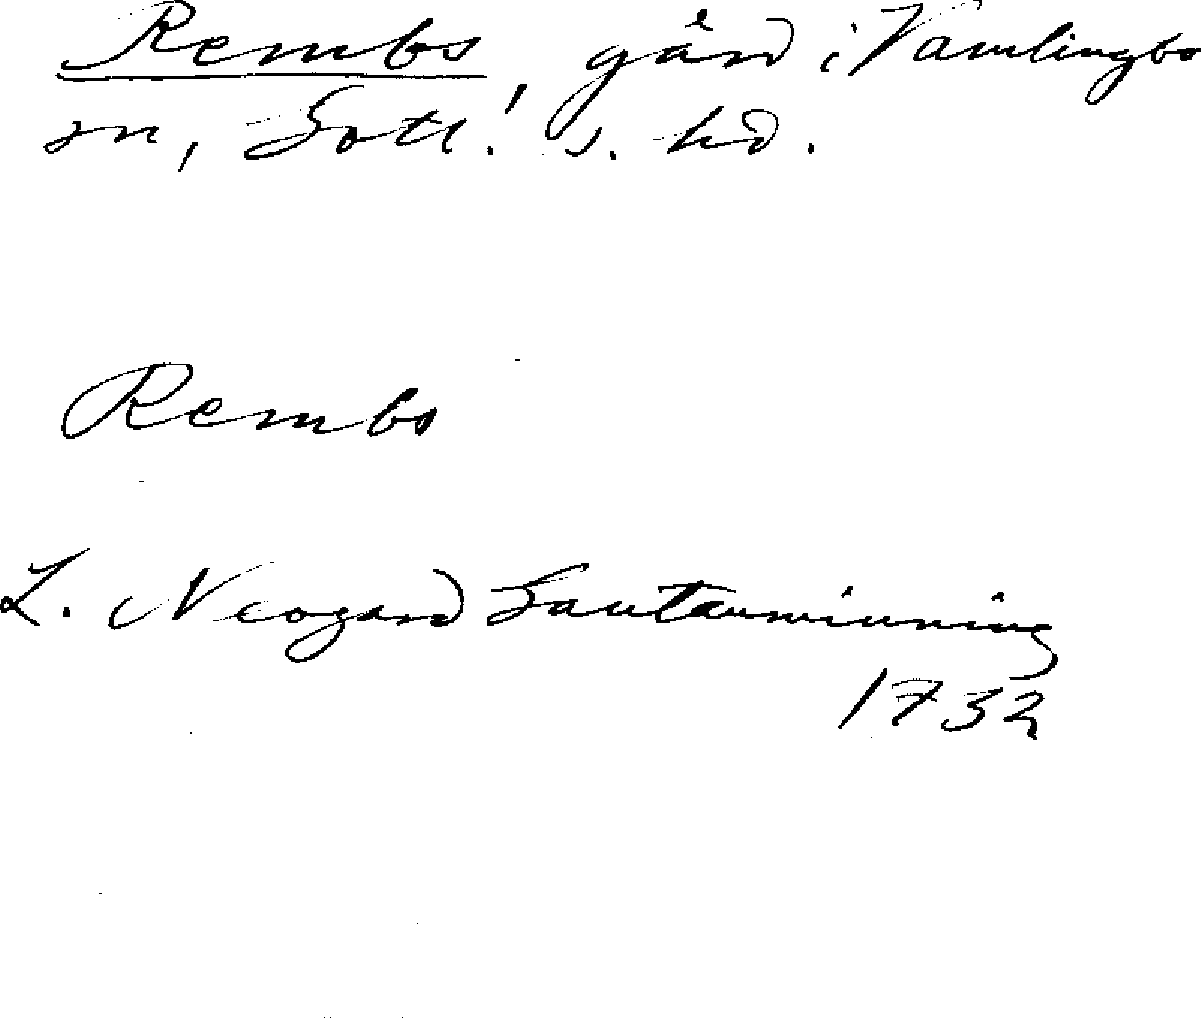 Rembs, gård i Vamlingbo
sn, Gotl. s. hd.
Rembs
L. Neogard Gautauminning
1732